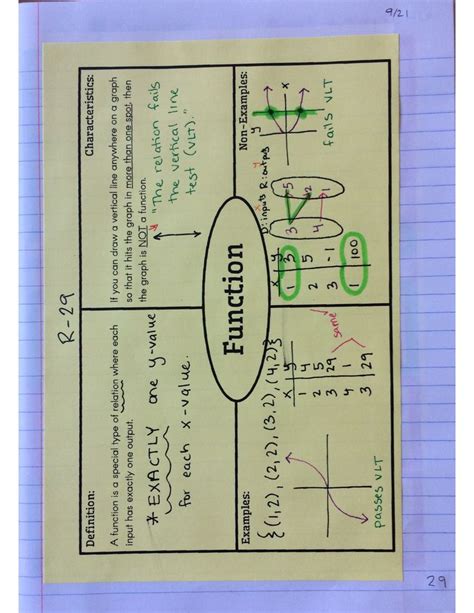 9/21
R-29
Definition:
A function is a special type of relation where each
input has exactly one output.
* EXACTLY one y-value
for each x-value.
Characteristics:
If you can draw a vertical line anywhere on a graph
so that it hits the graph in more than one spot, then
the graph is NOT a function.
"The relation fails
the vertical line
test (VLT)."
Function
Examples:
{(1,2), (2,2), (3,2), (4,2)}
x y
1 4
2 5
3 29
4 1
3 29
same
passes VLT
Non-Examples:
x y
D:inputs R:outputs
3 5
4 2
1
x y
1 3
2 5
3 -1
1 100
y
x
fails VLT
29